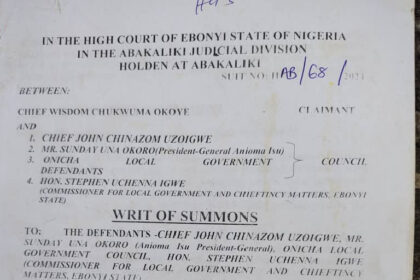 IN THE HIGH COURT OF EBONYI STATE OF NIGERIA
IN THE ABAKALIKI JUDICIAL DIVISION
HOLDEN AT ABAKALIKI
SUIT NO: HAB/68/2021
BETWEEN:
CHIEF WISDOM CHUKWUMA OKOYE CLAIMANT
AND
1. CHIEF JOHN CHINAZOM UZOIGWE
2. MR. SUNDAY UNA OKORO(President-General Anioma Isu)
3. ONICHA LOCAL GOVERNMENT COUNCIL
DEFENDANTS
4. HON. STEPHEN UCHENNA IGWE
(COMMISSIONER FOR LOCAL GOVERNMENT AND CHIEFTINCY MATTERS, EBONYI
STATE)
WRIT OF SUMMONS
TO: THE DEFENDANTS -CHIEF JOHN CHINAZOM UZOIGWE, MR.
SUNDAY UNA OKORO (Anioma Isu President-General), ONICHA LOCAL
GOVERNMENT COUNCIL, HON. STEPHEN UCHENNA IGWE
(COMMISSIONER FOR LOCAL GOVERNMENT AND CHIEFTINCY
MATTERS, EBONYI STATE)